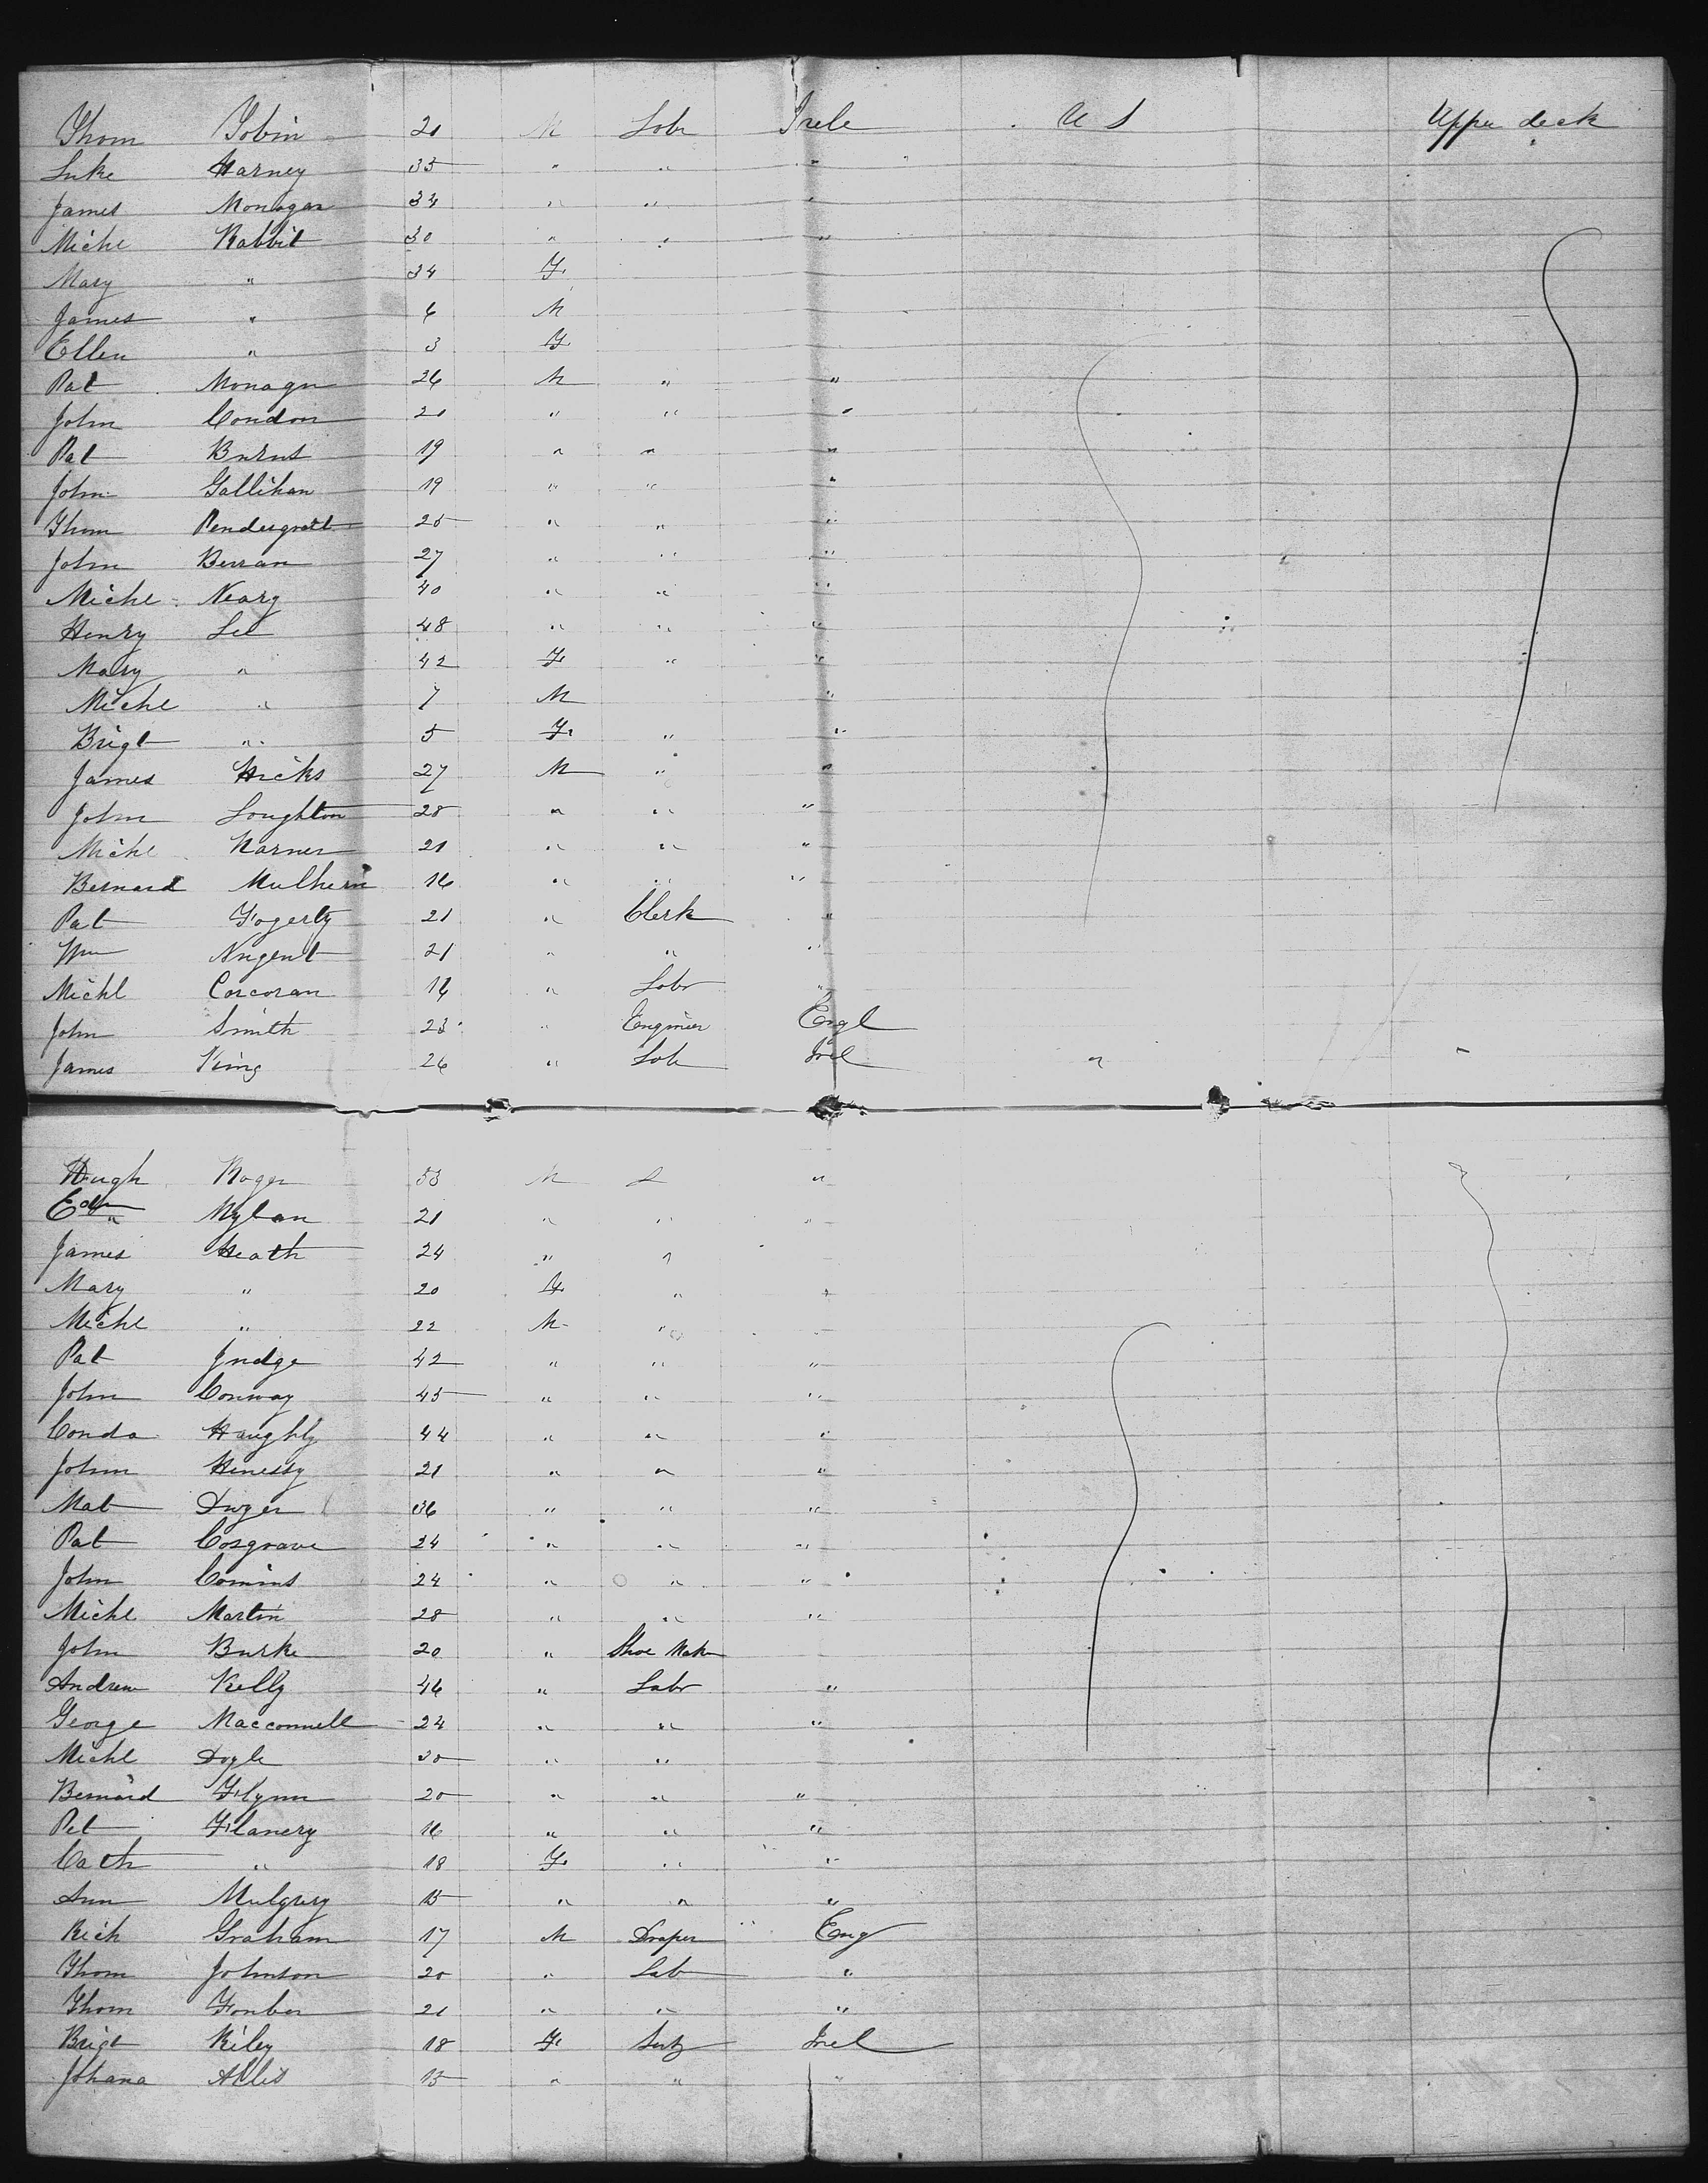 Thom Tobin 21 M Lobr Irele U S Upper deck
Luke Harney 35 " " "
James Monagan 34 " " "
Michl Rabbit 30 " " "
Mary " 34 F
James " 6 M
Ellen " 3 F
Pat Monagn 26 M " "
John Condon 21 " " "
Pat Burns 19 " " "
John Gallihan 19 " " "
Thom Pendergrast 25 " " "
John Berran 27 " " "
Michl Neary 40 " " "
Henry Lee 48 " " "
Mary " 42 F " "
Michl " 7 M "
Brigt " 5 F " "
James Hicks 27 M " "
John Loughton 28 " " "
Michl Karner 21 " " "
Bernard Mulhern 16 " " "
Pat Fogerty 21 " Clerk "
Wm Nugent 21 " " "
Michl Corcoran 16 " Lobr "
John Smith 23 " Engineer Engl
James King 26 " Lob Irel "
Hugh Roger 53 M L "
Edm Nylan 21 " " "
James Heath 24 " "
Mary " 20 F " "
Michl " 22 M "
Pat Judge 42 " " "
John Conway 45 " " "
Conda Haughly 44 " " "
John Henessy 21 " " "
Mat Dwyer 36 " " "
Pat Cosgrave 24 " " "
John Comins 24 " " "
Michl Martin 28 " " "
John Burke 20 " Shoe Mak
Andrew Kelly 46 " Labr "
George Macconnell 24 " " "
Michl Doyle 20 " "
Bernard Flynn 20 " " "
Pet Flanery 16 " " "
Cath " 18 F " "
Ann Mulgrey 15 " " "
Rich Graham 17 M Draper Eng
Thom Johnson 20 " Lab "
Thom Fonber 21 " " "
Brigt Riley 18 F Irel
Johana Allis 15 " " "